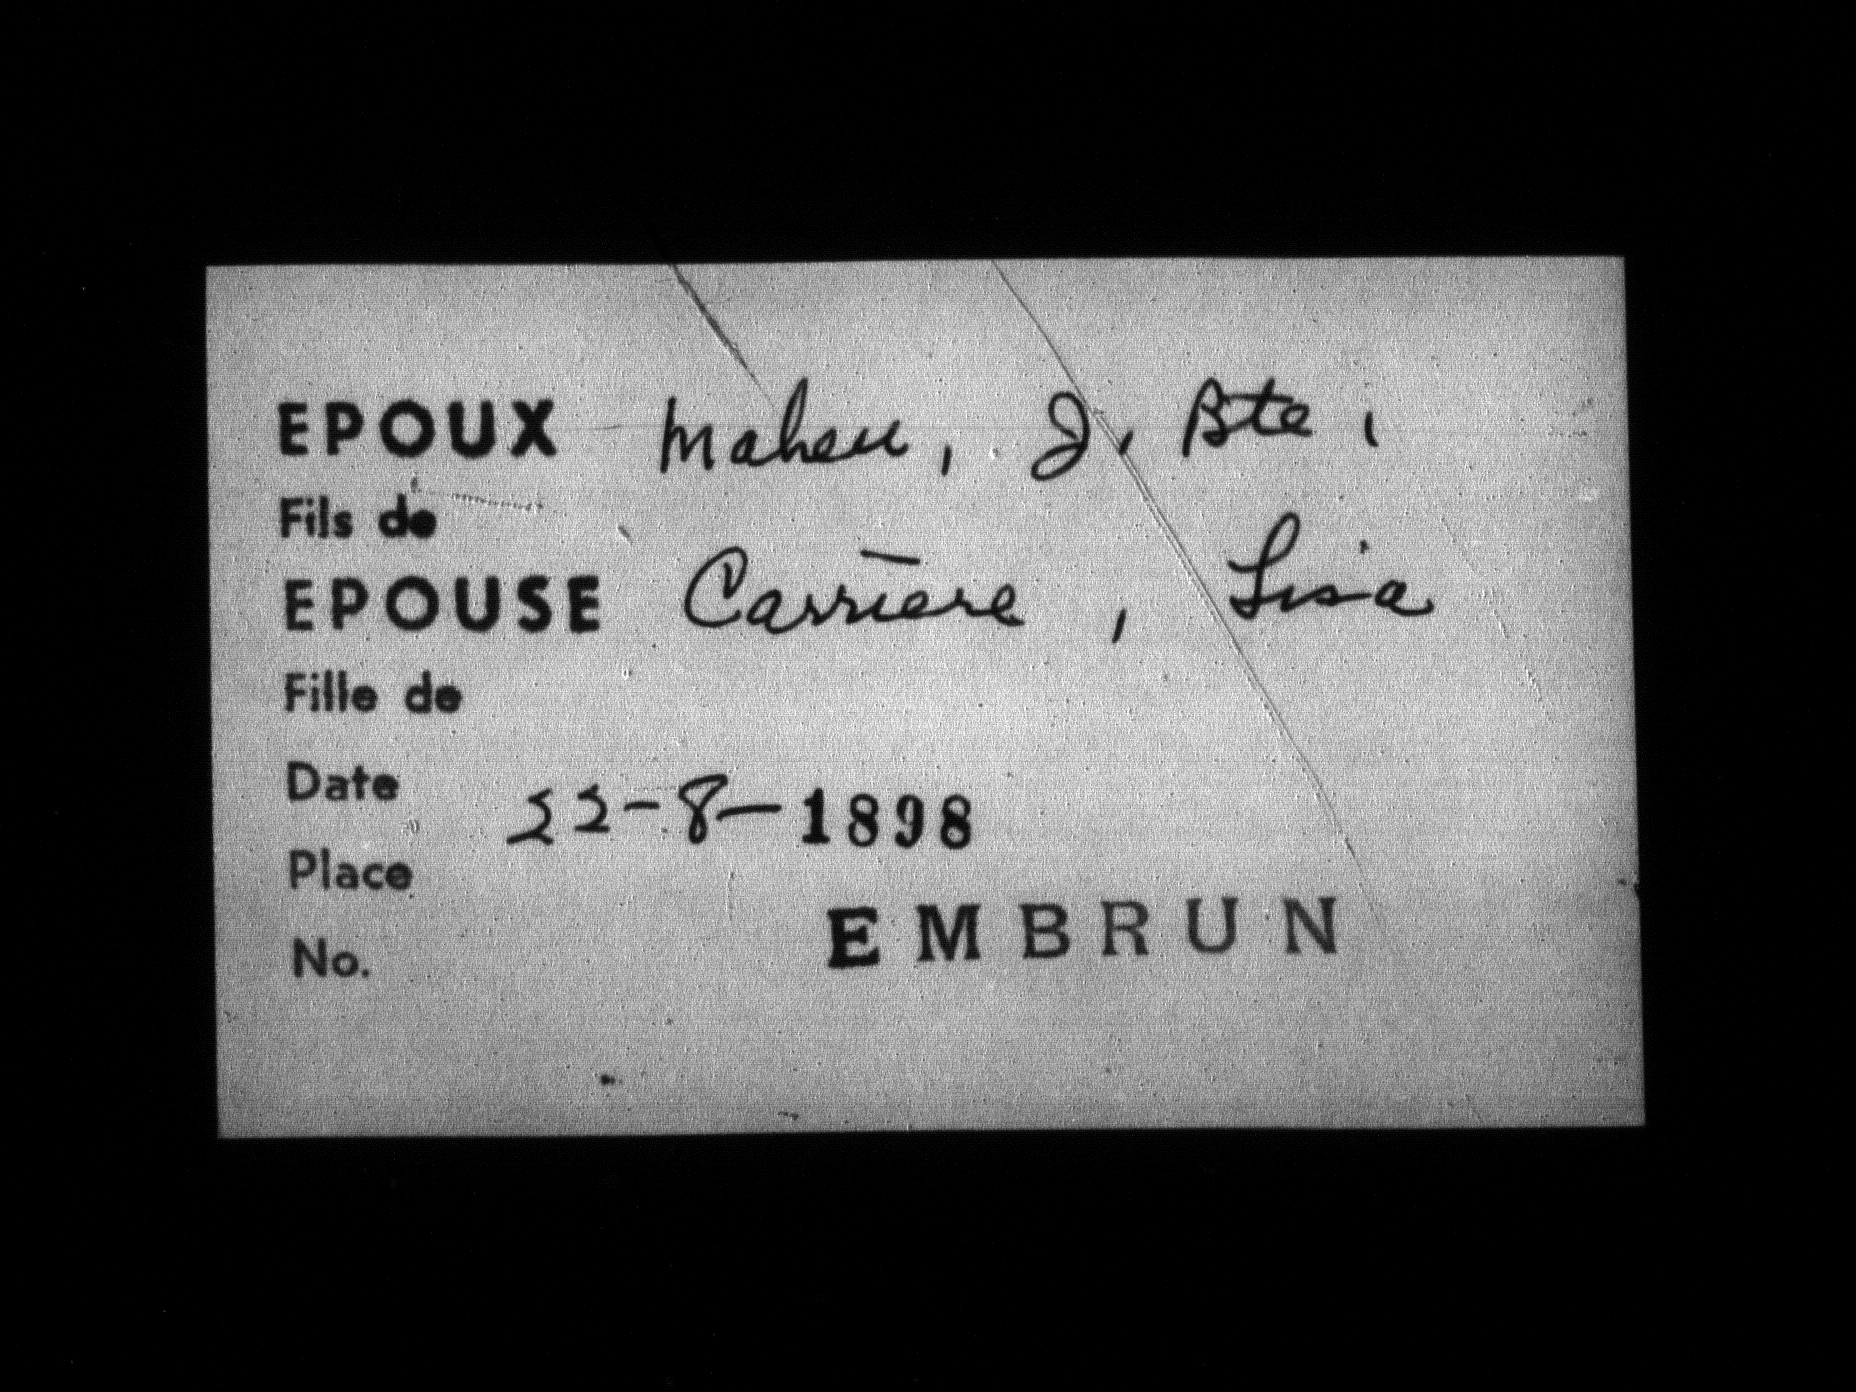 EPOUX Maheu, J, Bte,
Fils de
EPOUSE Carrière, Lisa
Fille de
Date 22-8-1898
Place EMBRUN
No.